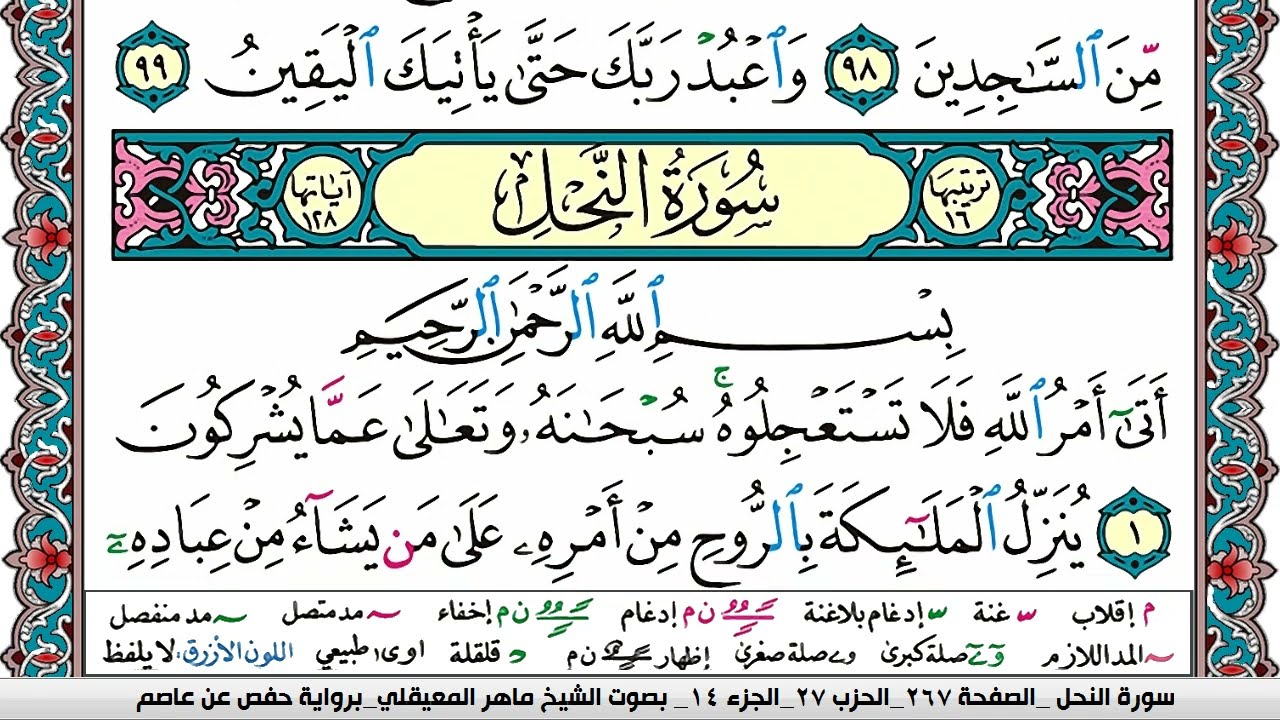 مِّنَ ٱلسَّـٰجِدِينَ ٩٨ وَٱعْبُدْ رَبَّكَ حَتَّىٰ يَأْتِيَكَ ٱلْيَقِينُ ٩٩
ترتيبها ١٦ سُورَةُ النَّحْلِ آياتها ١٢٨
بِسْمِ ٱللَّهِ ٱلرَّحْمَـٰنِ ٱلرَّحِيمِ
أَتَىٰٓ أَمْرُ ٱللَّهِ فَلَا تَسْتَعْجِلُوهُ ۚ سُبْحَـٰنَهُۥ وَتَعَـٰلَىٰ عَمَّا يُشْرِكُونَ
١ يُنَزِّلُ ٱلْمَلَـٰٓئِكَةَ بِٱلرُّوحِ مِنْ أَمْرِهِۦ عَلَىٰ مَن يَشَآءُ مِنْ عِبَادِهِۦٓ
م إقلاب غنة إدغام بلاغنة ن م إدغام ن م إخفاء مد متصل مد منفصل
المد اللازم صلة كبرى و ے صلة صغرى إظهار ن م قلقلة او ى ا طبيعي اللون الأزرق: لا يلفظ
سورة النحل _الصفحة ٢٦٧_الحزب ٢٧_الجزء ١٤_ بصوت الشيخ ماهر المعيقلي_برواية حفص عن عاصم